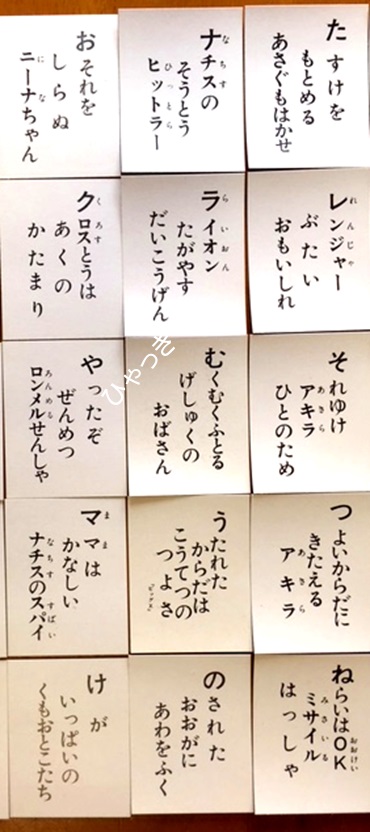 たすけを
もとめる
あさぐもはかせ
ナチスの
そうとう
ヒットラー
おそれを
しらぬ
ニーナちゃん
レンジャー
ぶたい
おもいしれ
ライオン
たがやす
だいこうげん
クロスとうは
あくの
かたまり
それゆけ
アキラ
ひとのため
むくむくふとる
げしゅくの
おばさん
やったぞ
ぜんめつ
ロンメルせんしゃ
つよいからだに
きたえる
アキラ
うたれた
からだは
こうてつの
つよさ
ママは
かなしい
ナチスのスパイ
ねらいはOK
ミサイル
はっしゃ
のされた
おおがに
あわをふく
けが
いっぱいの
くもおとこたち
ひゃっき